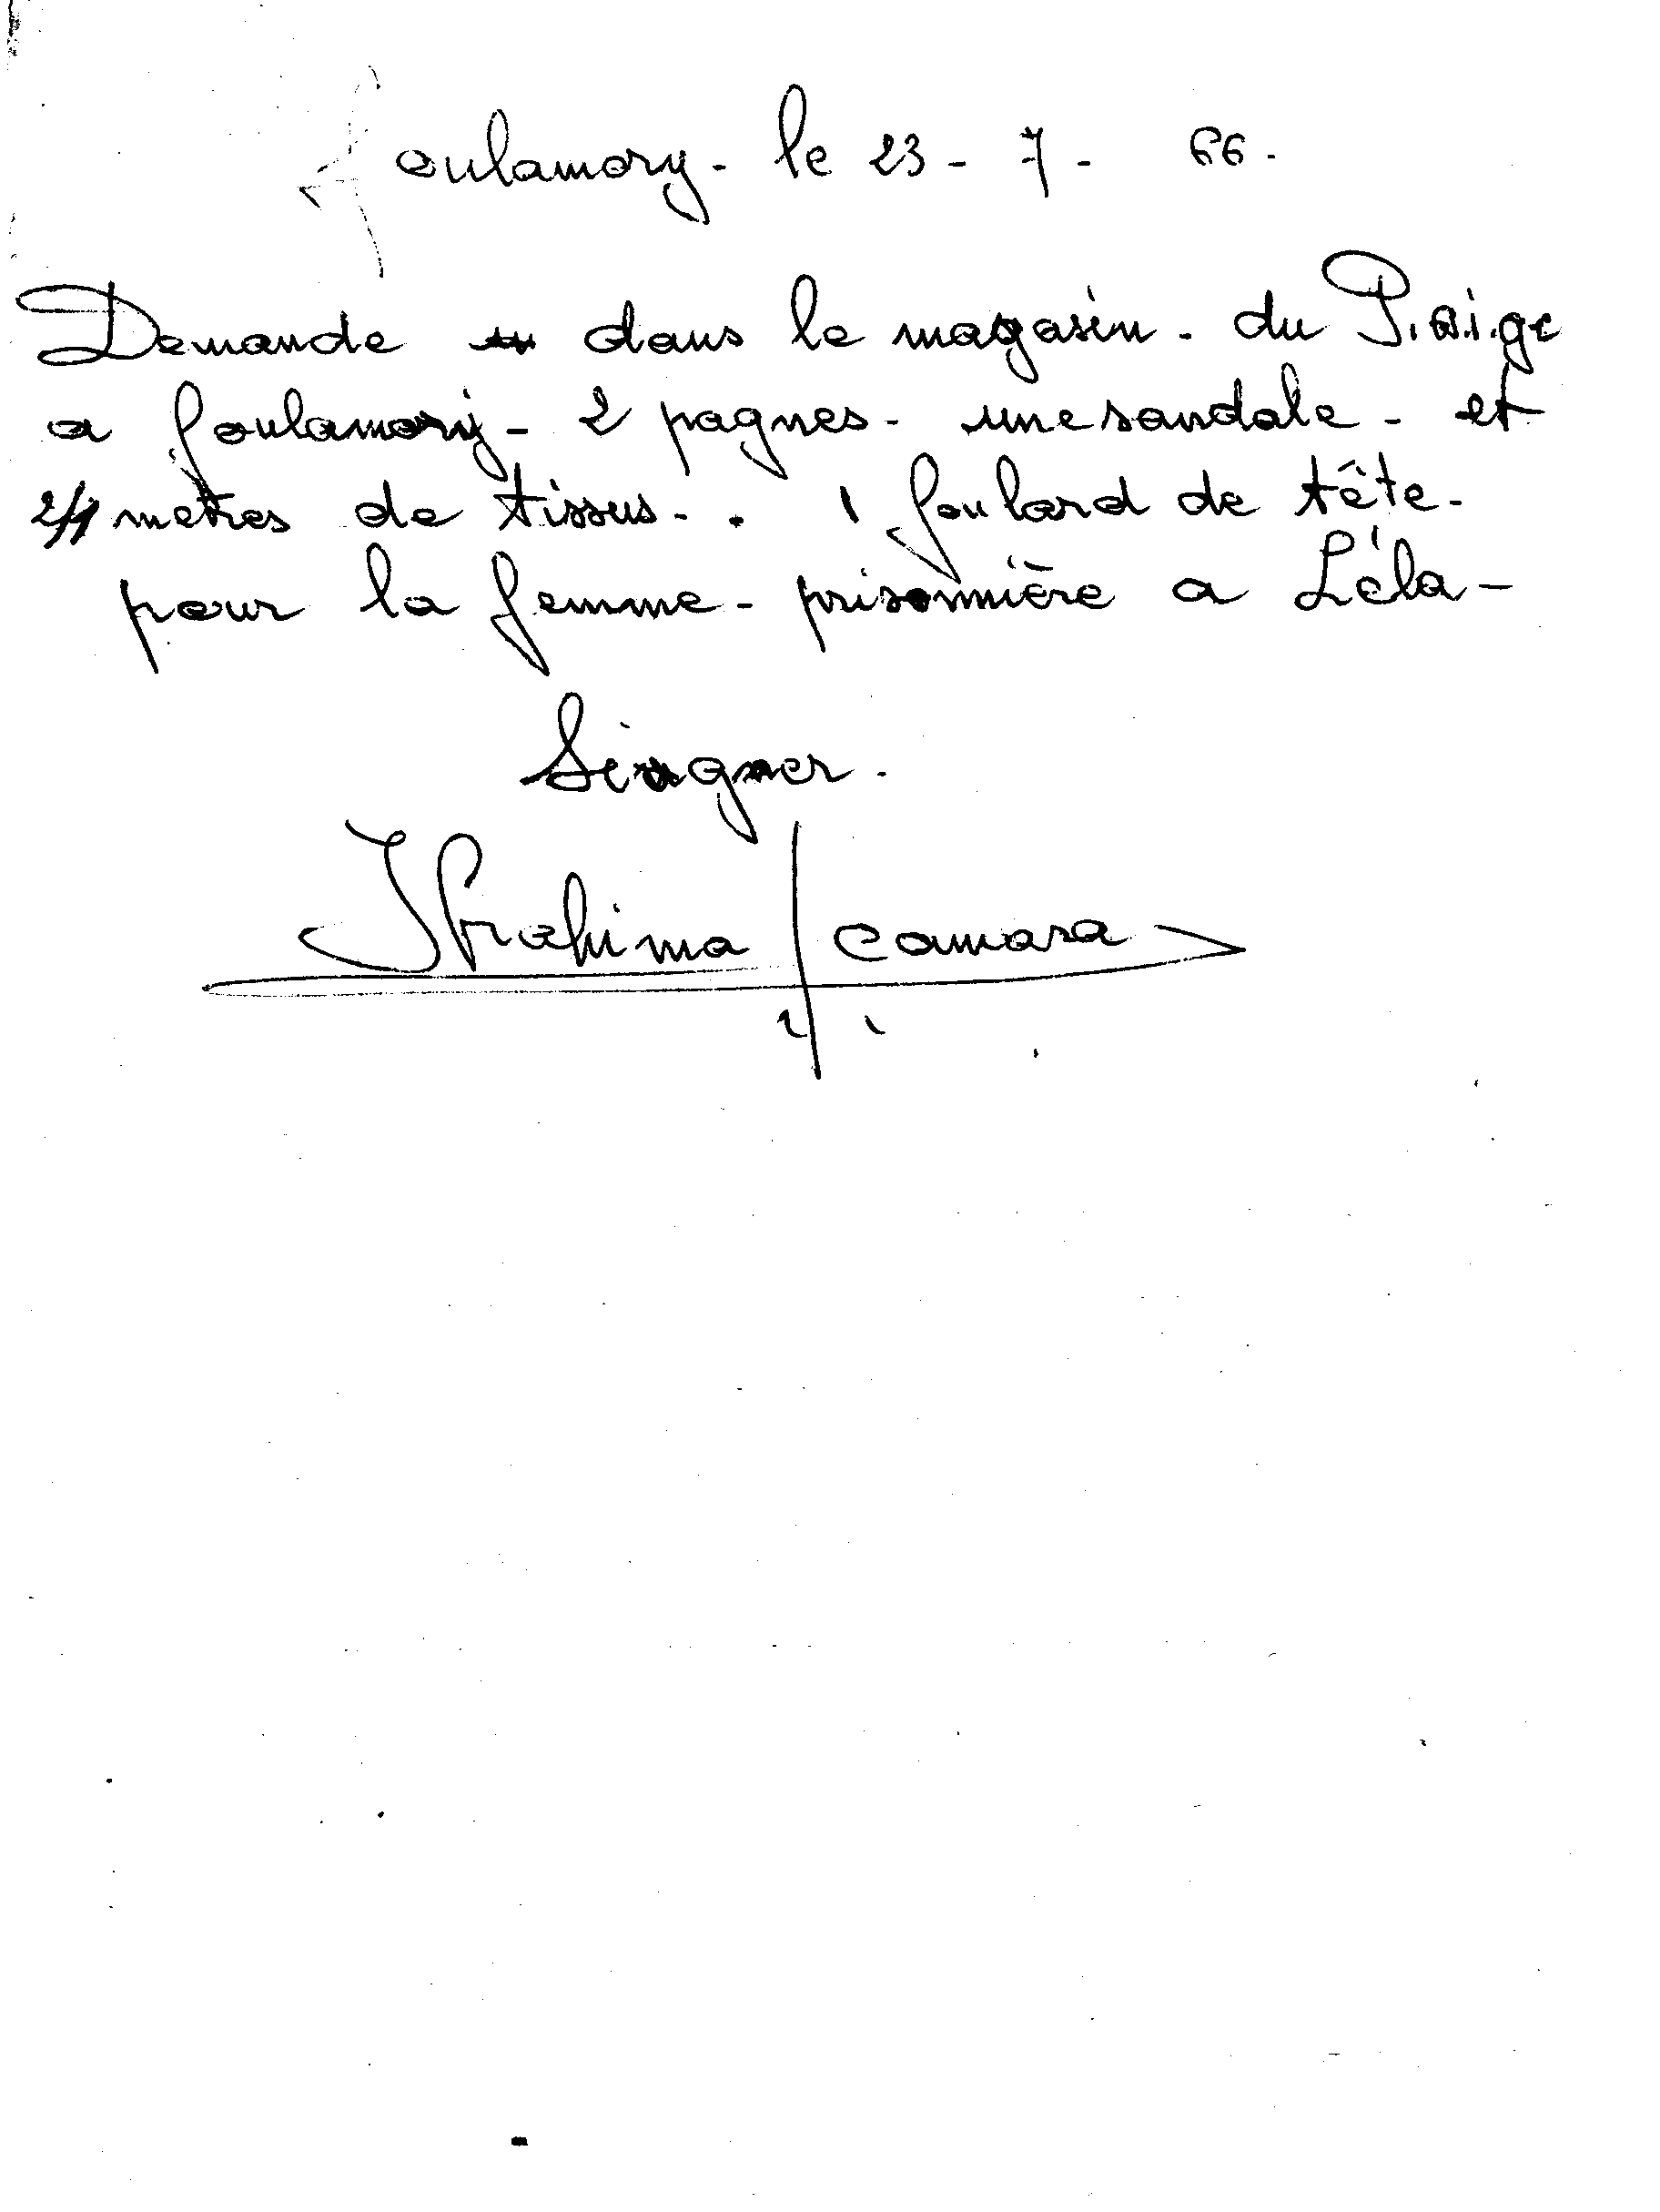 Foulamory - le 23 - 7 - 66 .
Demande dans le magasin - du P.a.i.gc
a foulamory - 2 pagnes - une sandale - et
2/1 metres de tissus - . 1 foulard de tête -
pour la femme - prisonnière a Léla -
Seingner -
Ibrahima / camara